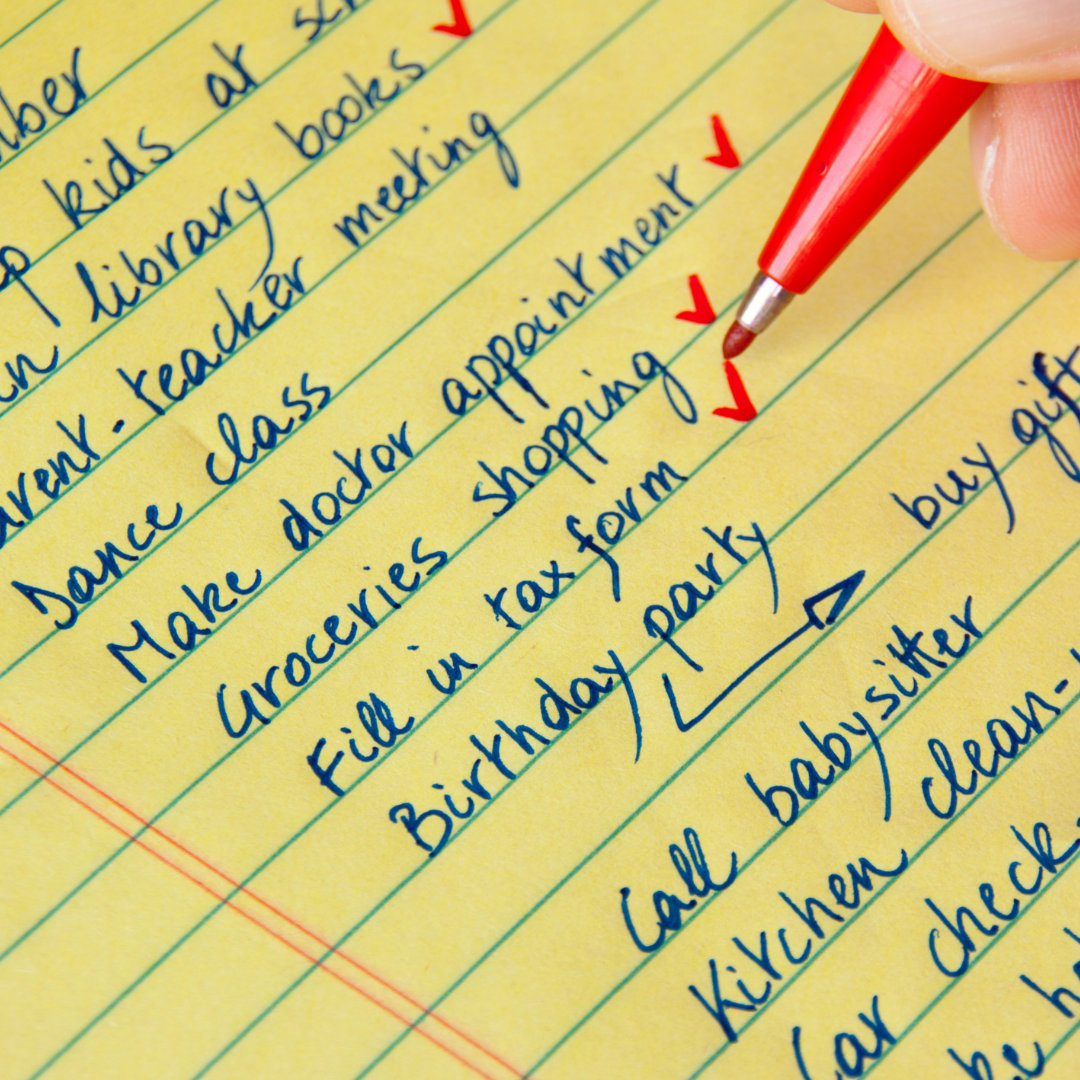 at
kids
library books
meeting
Dance class
Make doctor appointment
Groceries shopping
Fill in tax form
Birthday party
buy
Call babysitter
Kitchen clean-
Car check-